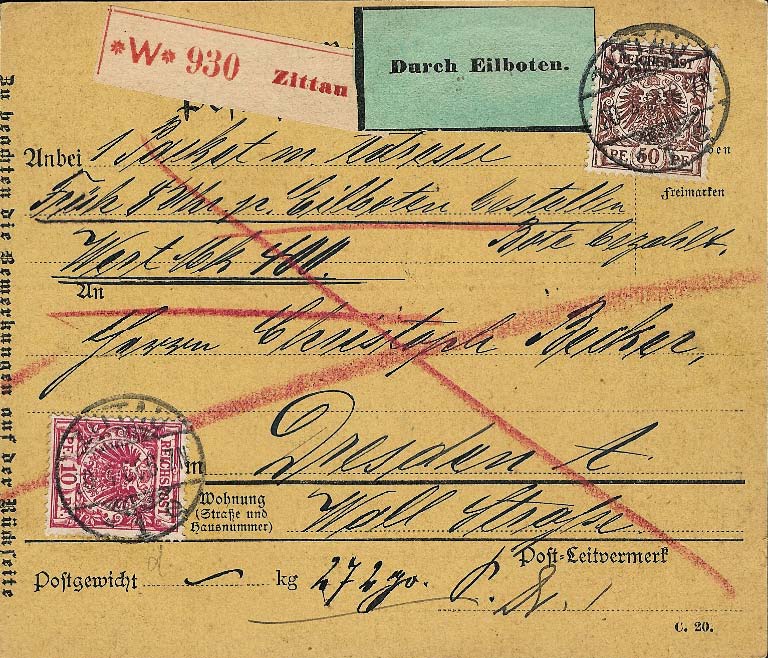 *W* 930 Zittau
Durch Eilboten.
REICHSPOST
50 PF
Anbei 1 Packet m. Adresse
Früh 8 Uhr pr. Eilboten bestellen
Bote bezahlt.
Freimarken
Wert Mk 400.
An
Herrn Christoph Becker,
in Dresden A.
Wohnung
(Straße und
Hausnummer)
Wall Straße
REICHSPOST
10 PF
Post-Leitvermerk
Postgewicht kg 272 gr.
C. 20.
Zu beachten die Bemerkungen auf der Rückseite